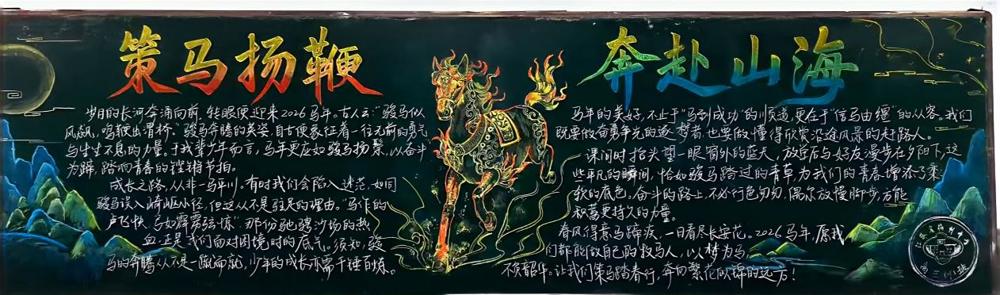 策马扬鞭
奔赴山海
岁月的长河奔涌向前，转眼便迎来2026马年。古人云："骏马似
风飙，鸣鞭出渭桥。"骏马奔腾的英姿，自古便象征着一往无前的勇气
与生生不息的力量。于我辈少年而言，马年更应如骏马扬鬃，以奋斗
为蹄，踏响青春的铿锵节拍。
成长之路，从非一马平川。有时我们会陷入迷茫，如同
骏马误入崎岖小径，但这从不是驻足的理由。"马作的
卢飞快，弓如霹雳弦惊"，那份驰骋沙场的热
血，正是我们面对困境时的底气。须知，骏
马的奔腾从不是一蹴而就，少年的成长亦需千锤百炼。
马年的美好，不止于"马到成功"的顺遂，更在于"信马由缰"的从容。我们
既要做奋勇争先的逐梦者，也要做懂得欣赏沿途风景的赶路人。
课间时抬头望一眼窗外的蓝天，放学后与好友漫步在夕阳下，这
些平凡的瞬间，恰如骏马踏过的青草，为我们的青春增添了柔
软的底色。奋斗的路上，不必行色匆匆，偶尔放慢脚步，方能
积蓄更持久的力量。
春风得意马蹄疾，一日看尽长安花。2026马年，愿我
们都能做自己的牧马人，以梦为马，
不负韶华。让我们策马踏春行，奔向繁花似锦的远方！